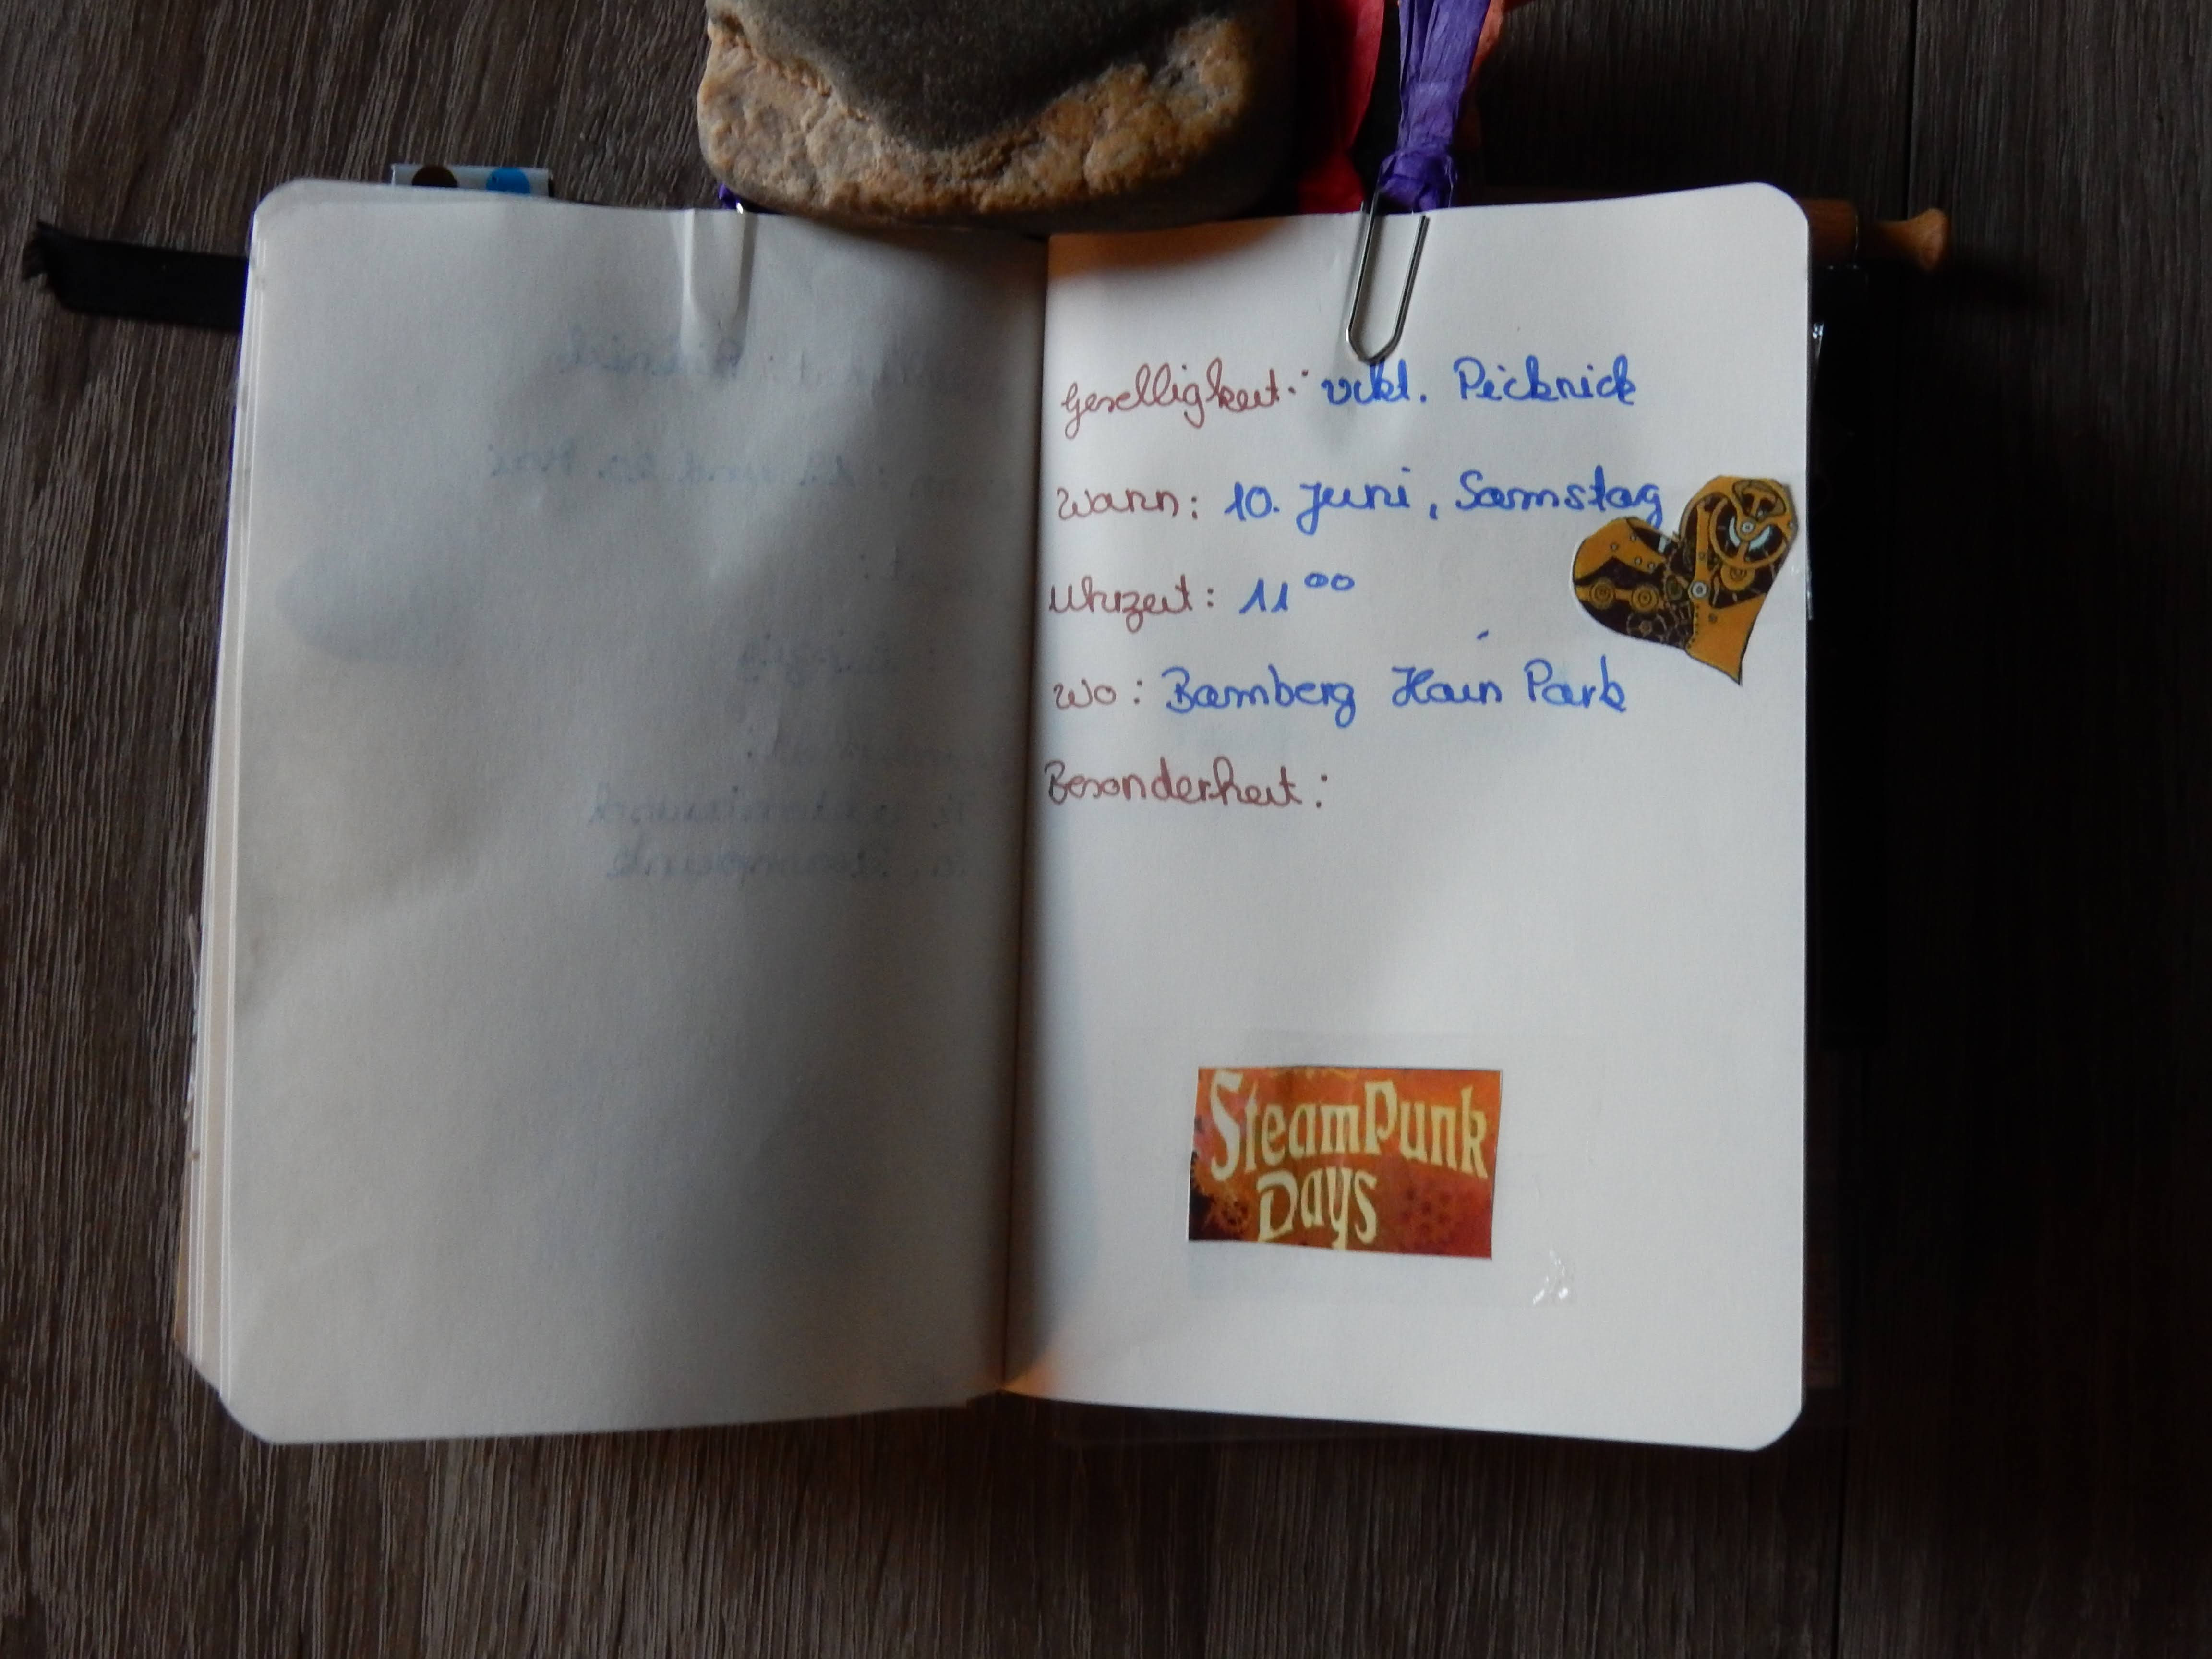 Geselligkeit: vikt. Picknick
Wann: 10. Juni, Samstag
Uhrzeit: 11⁰⁰
Wo: Bamberg Hain Park
Besonderheit:
SteamPunk
Days